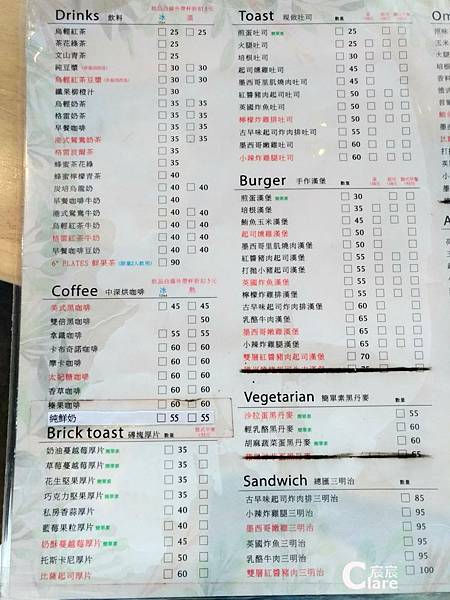 Drinks 飲料
飲品自備外帶杯折扣5元
冰 溫
烏輕紅茶 25 25
茶花綠茶 25
文山青茶 25
純豆漿 30 30
烏輕紅茶豆漿 30 30
纖果柳橙汁 30
烏輕奶茶 35 35
格雷奶茶 35 35
早餐咖啡 35 35
港式鴛鴦奶茶 35 35
格雷炭焙茶 35
蜂蜜茶花綠 35
蜂蜜檸檬青茶 40
炭培烏龍奶 40 40
早餐咖啡牛奶 40 40
港式鴛鴦牛奶 40 40
烏輕紅茶牛奶 40 40
格雷紅茶牛奶 40 40
早餐咖啡豆奶 40 40
6" PLATES 鮮果茶 (限量2人飲用) 90
飲品自備外帶杯折扣5元
Coffee 中深烘咖啡 冰 熱
美式黑咖啡 45 45
雙倍黑咖啡 50
拿鐵咖啡 55 55
卡布奇諾咖啡 60 60
摩卡咖啡 60 60
太妃糖咖啡 60 60
香草咖啡 60 60
榛果咖啡 60 60
純鮮奶 55 55
Brick toast 磚塊厚片 數量
奶油蔓越莓厚片 簡單素 35
草莓蔓越莓厚片 簡單素 35
花生堅果厚片 簡單素 35
巧克力堅果厚片 簡單素 35
私房香蒜厚片 40
藍莓果粒厚片 簡單素 45
奶酥蔓越莓厚片 簡單素 45
托斯卡尼厚片 50
比薩起司厚片 60
Toast 現做吐司 數量
煎蛋吐司 簡單素 25
火腿吐司 30
培根吐司 30
起司燻雞吐司 45
墨西哥里肌燒肉吐司 45
紅醬豬肉起司吐司 45
英國炸魚吐司 50
檸檬炸雞排吐司 50
古早味起司炸肉排吐司 50
墨西哥嫩雞吐司 50
小辣炸雞腿吐司 60
Burger 手作漢堡 數量
煎蛋漢堡 簡單素 30
培根漢堡 35
鮪魚玉米漢堡 45
起司燻雞漢堡 50
墨西哥里肌燒肉漢堡 50
紅醬豬肉起司漢堡 50
打拋小豬起司漢堡 50
英國炸魚漢堡 55
檸檬炸雞排漢堡 55
古早味起司炸肉排漢堡 55
乳酪牛肉漢堡 65
墨西哥嫩雞漢堡 55
小辣炸雞腿漢堡 65
雙層紅醬豬肉起司漢堡 70
Vegetarian 簡單素黑丹麥 數量
沙拉蛋黑丹麥 簡單素 55
輕乳酪黑丹麥 簡單素 60
胡麻蔬菜蛋黑丹麥 簡單素 60
Sandwich 總匯三明治 數量
古早味起司炸肉排三明治 85
小辣炸雞三明治 95
墨西哥嫩雞三明治 95
英國炸魚三明治 95
乳酪牛肉三明治 95
雙層紅醬豬肉三明治 100
宸宸
Clare